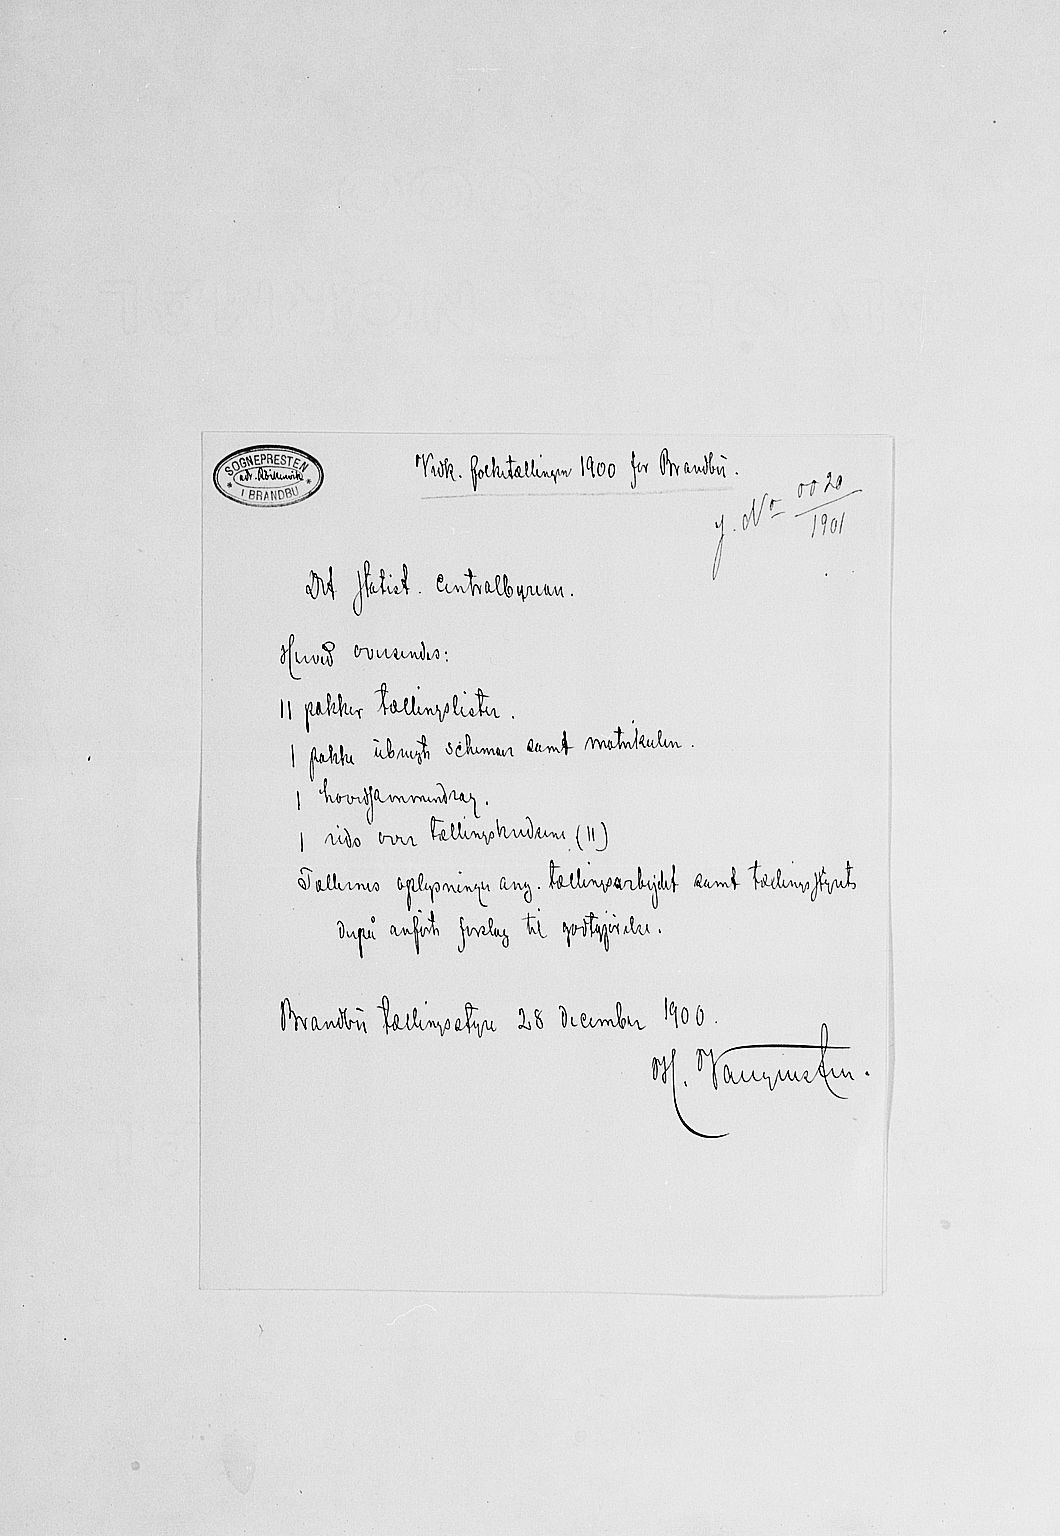 SOGNEPRESTEN
adr. Røikenvik
I BRANDBU
Vedk. folketællingen 1900 for Brandbu.
J. No 0020
1901
Det statist. Centralbyreau.
Herved oversendes:
11 pakker tællingslister.
1 pakke ubrugte schemaer samt matrikulen.
1 hovedsammendrag.
1 rids over tællingskredsene (11)
Tællernes oplysninger ang. tællingsarbeidet samt tællingsstyrets
derpå anførte forslag til godtgjørelse.
Brandbu tællingsstyre 28 december 1900.
H. Vangensten.